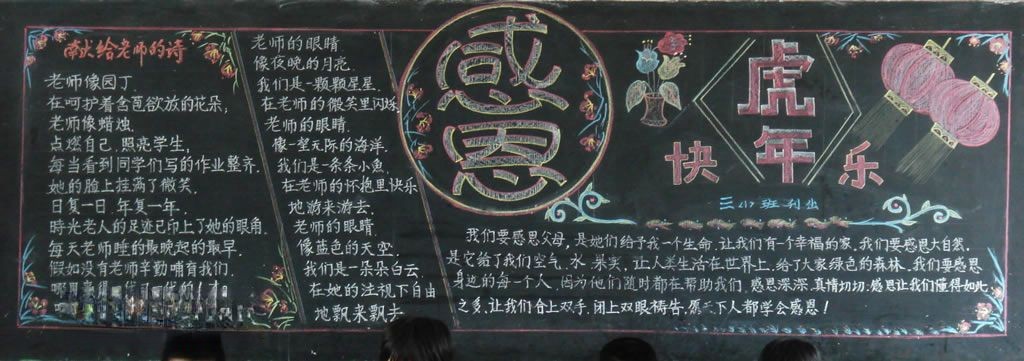 献给老师的诗
老师像园丁.
在呵护着含苞欲放的花朵;
老师像蜡烛.
点燃自己.照亮学生,
每当看到同学们写的作业整齐.
她的脸上挂满了微笑.
日复一日.年复一年.
時光老人的足迹已印上了她的眼角.
每天老师睡的最晚起的最早.
假如没有老师辛勤哺育我们.
老师的眼睛
像夜晚的月亮.
我们是一颗颗星星
在老师的微笑里闪烁
老师的眼睛.
像一望无际的海洋.
我们是一条条小鱼.
在老师的怀抱里快乐
地游来游去.
老师的眼睛.
像蓝色的天空.
我们是一朵朵白云
在她的注视下自由
地飘来飘去
感恩
虎年
快乐
三(1)班刊出
我们要感恩父母,是她们给予我一个生命.让我们有一个幸福的家.我们要感恩大自然.
是它给了我们空气.水.果实.让人类生活在世界上.给了大家绿色的森林.我们要感恩
身边的每一个人.因为他们随时都在帮助我们.感恩深深.真情切切.感恩让我们懂得如此
之多.让我们合上双手.闭上双眼祷告.愿天下人都学会感恩!